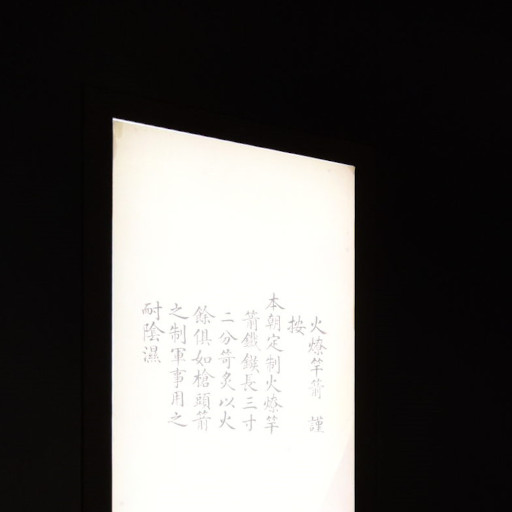 火燎竿箭 謹
按
本朝定制火燎竿
箭鐵鏃長三寸
二分箭炙以火
餘俱如槍頭箭
之制軍事用之
耐陰濕